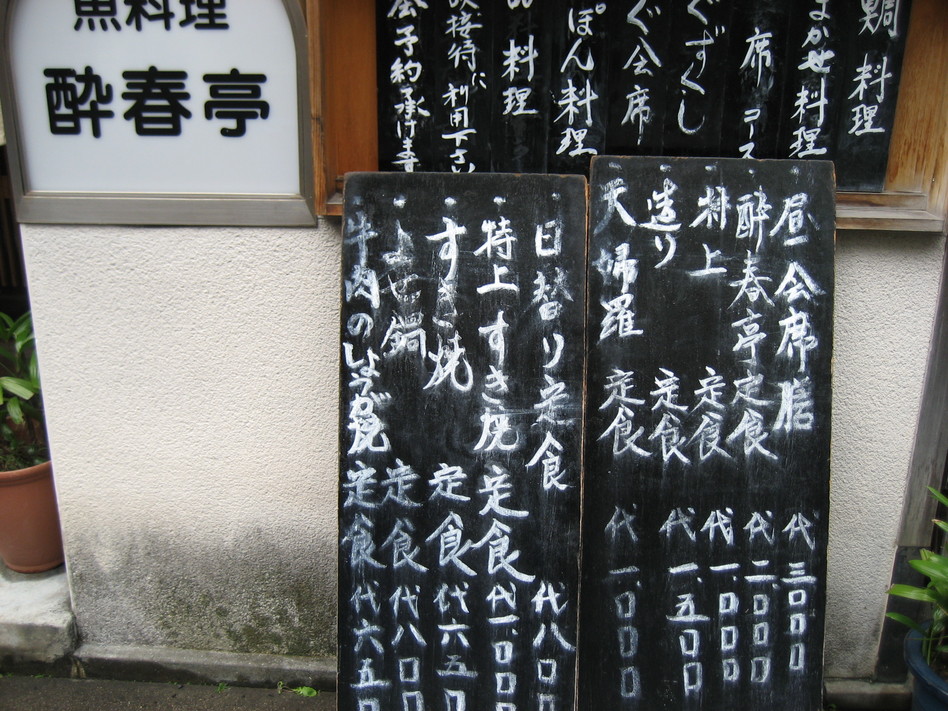 魚料理
酔春亭
鯛料理
まかせ料理
席コース
ぐずくし
ぐ会席
ぽん料理
料理
接待に利用下さい
会予約承けます
昼会席膳 代三〇〇〇
酔春亭定食 代二〇〇〇
上定食 代一、〇〇〇
造り定食 代一、五〇〇
天婦羅定食 代一、〇〇〇
日替り定食 代八〇〇
特上すき焼定食 代一、〇〇
すき焼定食 代六五〇
よせ鍋定食 代八〇〇
牛肉のしょうが焼定食 代六五〇